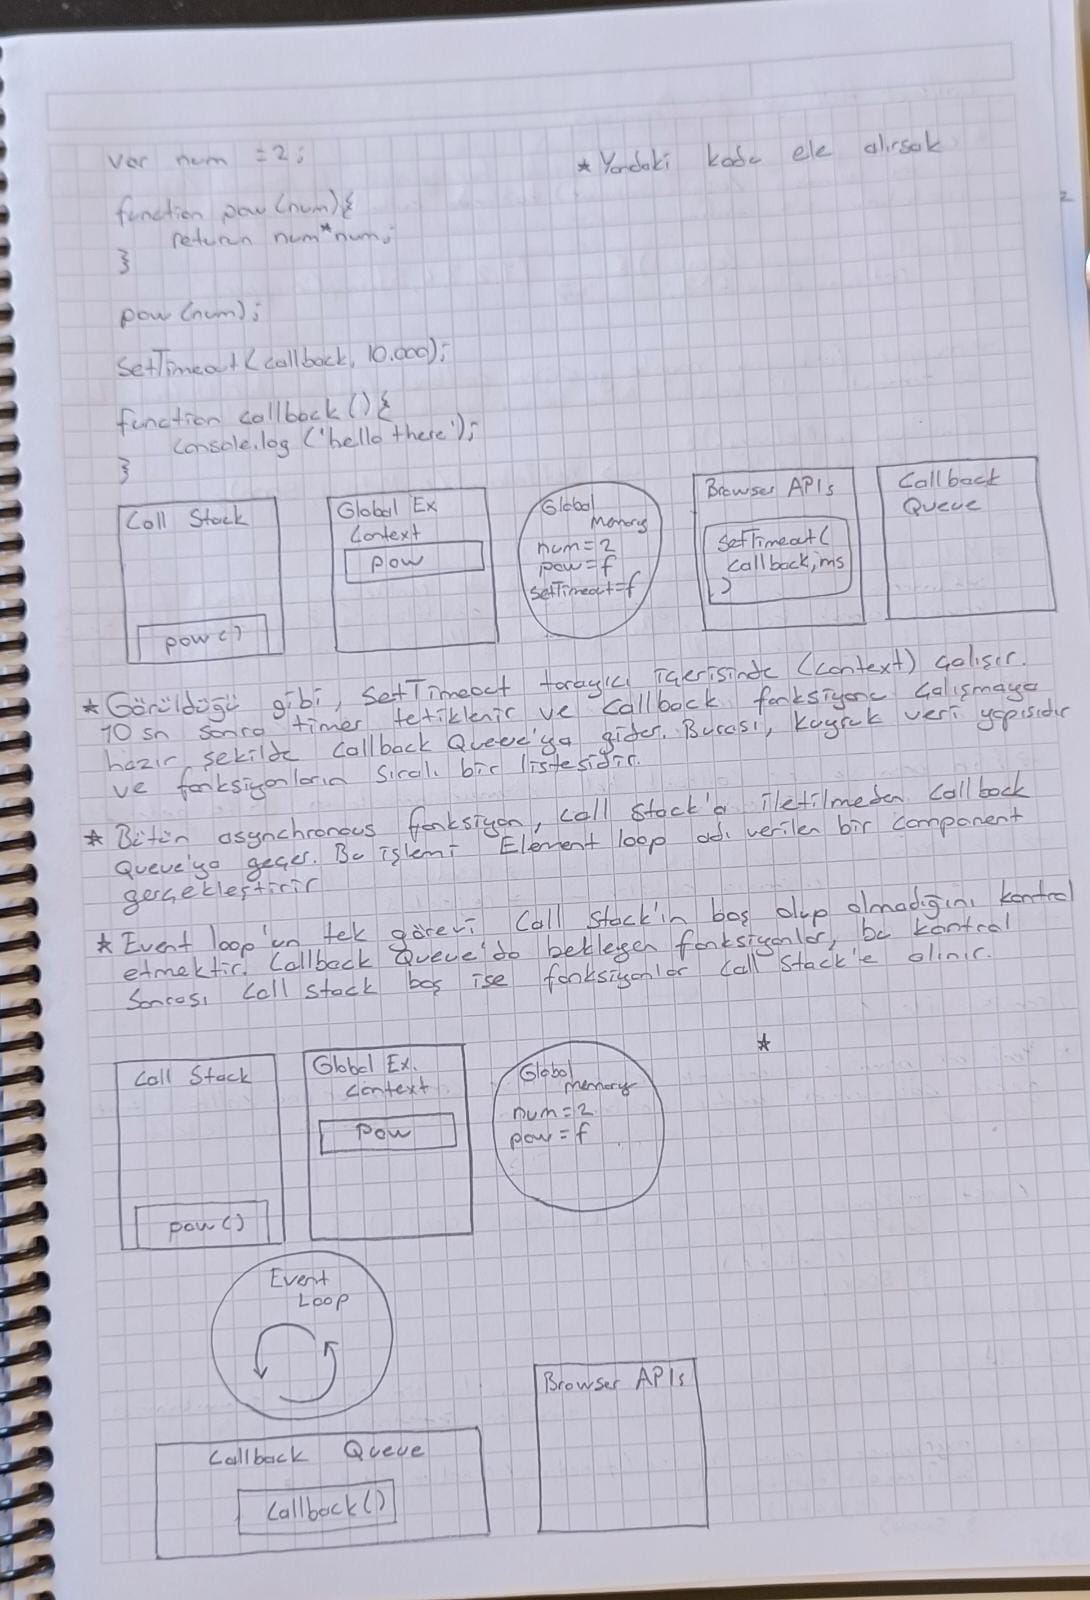 var num = 2;
* Yandaki kodu ele alırsak
function pow (num){
return num*num;
}
pow (num);
SetTimeout (callback, 10.000);
function callback () {
console.log ('hello there');
}
Call Stack
pow ()
Global Ex
Context
pow
Global
Memory
num=2
pow=f
setTimeout=f
Browser APIs
SetTimeout(
callback, ms
)
Callback
Queue
* Görüldüğü gibi, SetTimeout tarayıcı içerisinde (context) çalışır.
10 sn sonra timer tetiklenir ve callback fonksiyonu çalışmaya
hazır şekilde Callback Queue'ya gider. Burası, kuyruk veri yapısıdır
ve fonksiyonların sıralı bir listesidir.
* Bütün asynchronous fonksiyon, call stack'a iletilmeden Callback
Queue'ya geçer. Bu işlemi Element loop adı verilen bir component
gerçekleştirir
* Event loop'un tek görevi Call Stack'in boş olup olmadığını kontrol
etmektir. Callback Queue'da bekleyen fonksiyonlar, bu kontrol
Sonrası Call stack boş ise fonksiyonlar Call Stack'e alınır.
*
Call Stack
pow ()
Global Ex.
Context
pow
Global
memory
num=2
pow=f
Event
Loop
Browser APIs
Callback Queue
Callback()